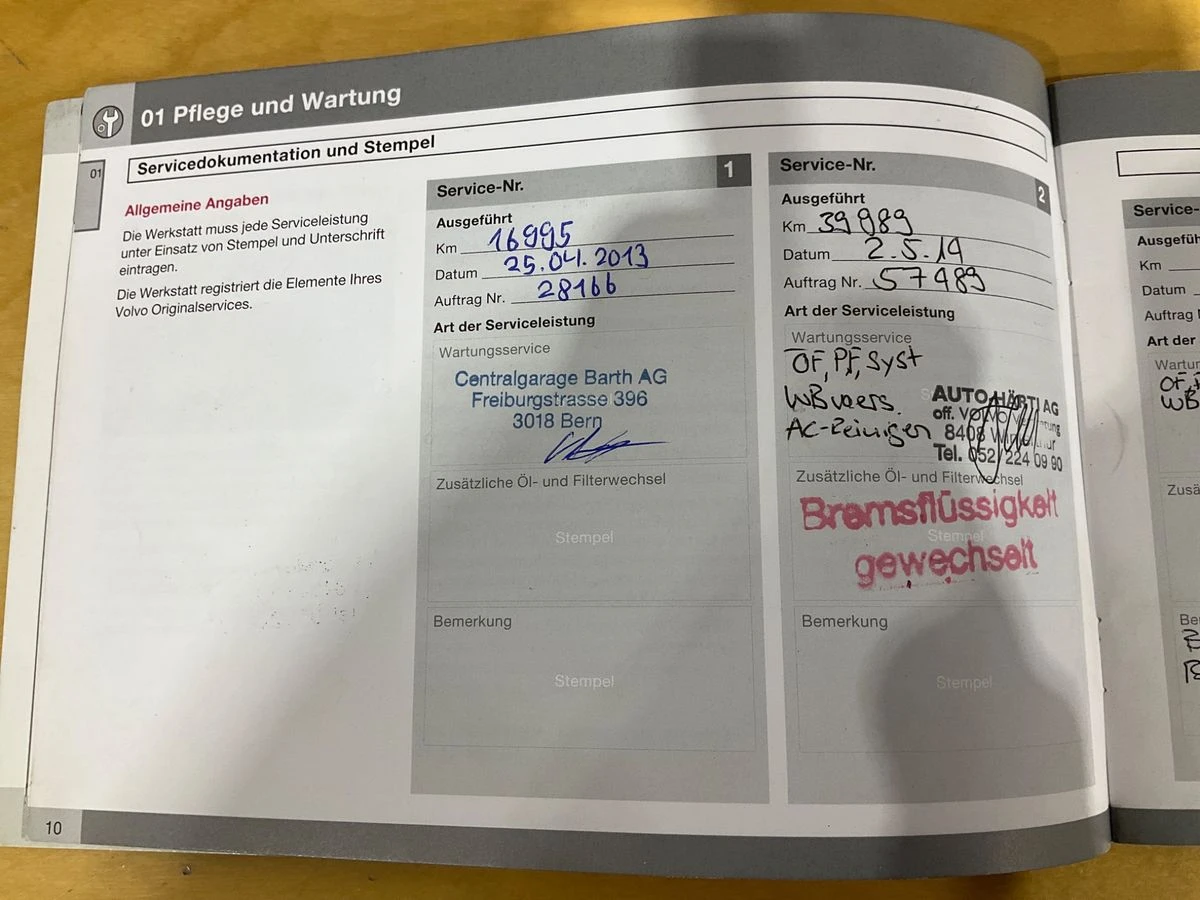 01 Pflege und Wartung
Servicedokumentation und Stempel
01
Allgemeine Angaben
Die Werkstatt muss jede Serviceleistung
unter Einsatz von Stempel und Unterschrift
eintragen.
Die Werkstatt registriert die Elemente Ihres
Volvo Originalservices.
Service-Nr. 1
Ausgeführt
Km 16995
Datum 25.04.2013
Auftrag Nr. 28166
Art der Serviceleistung
Wartungsservice
Centralgarage Barth AG
Freiburgstrasse 396
3018 Bern
Zusätzliche Öl- und Filterwechsel
Stempel
Bemerkung
Stempel
Service-Nr. 2
Ausgeführt
Km 39989
Datum 2.5.14
Auftrag Nr. 57489
Art der Serviceleistung
Wartungsservice
OF, PF, Syst
WB vers.
AC-Reiniger
AUTO HÄRTI AG
off.
8408
Tel. 052/224 09 90
Zusätzliche Öl- und Filterwechsel
Bremsflüssigkeit
Stempel
gewechselt
Bemerkung
Stempel
Service-
Ausgefüh
Km
Datum
Auftrag
Art der
Wartur
OF,
WB
Zusä
Be
10